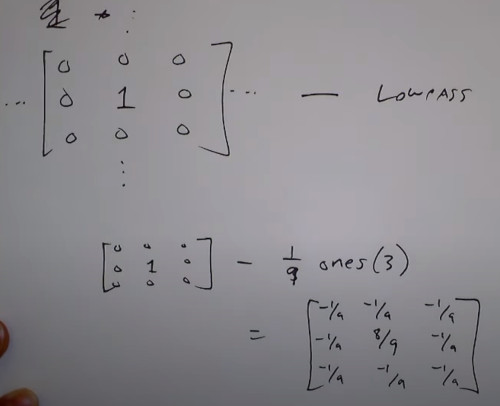 ⋮
0 0 0
... 0 1 0 ... — LOWPASS
0 0 0
⋮
0 0 0
0 1 0 - 1/9 ones(3)
0 0 0
= -1/9 -1/9 -1/9
-1/9 8/9 -1/9
-1/9 -1/9 -1/9